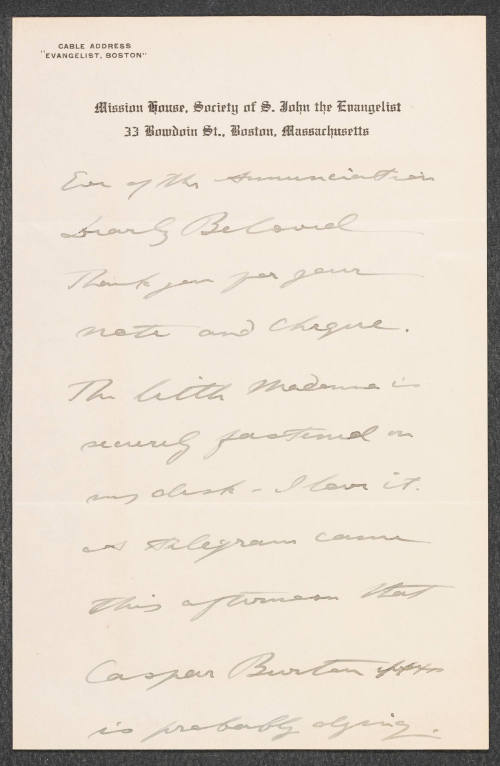 CABLE ADDRESS
"EVANGELIST, BOSTON"
Mission House, Society of S. John the Evangelist
33 Bowdoin St., Boston, Massachusetts
Eve of the Annunciation
Dearly Beloved
Thank you for your
note and cheque.
The little Madonna is
securely fastened on
my desk - I love it.
A telegram came
this afternoon that
Caspar Burton
is probably dying.